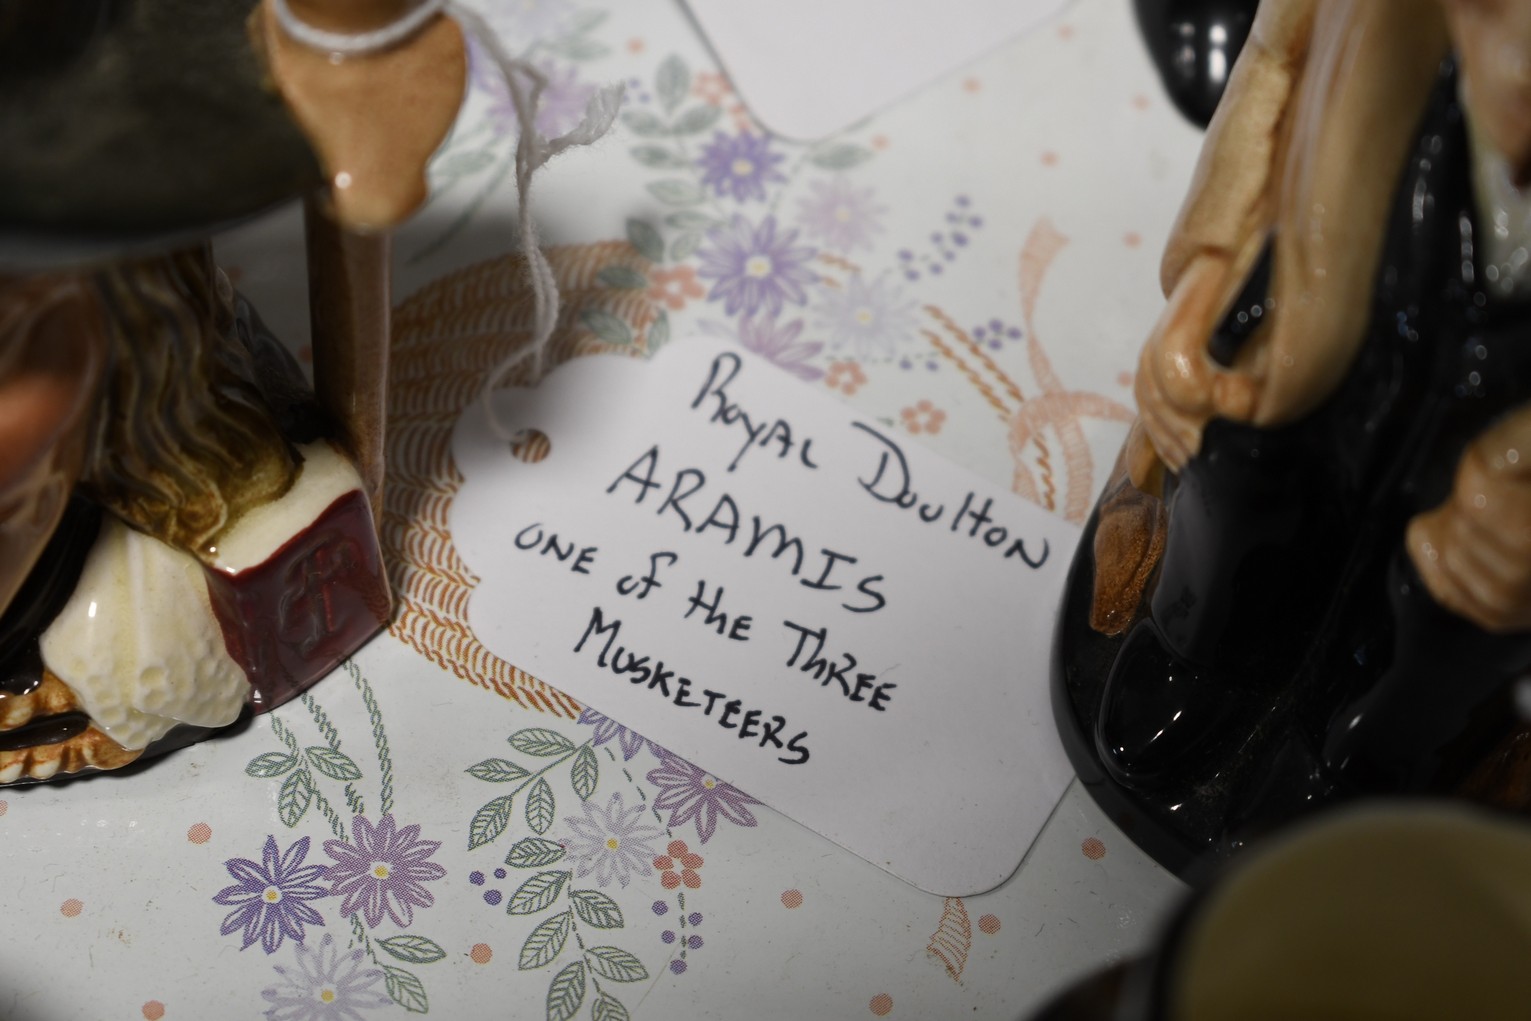 Royal Doulton
ARAMIS
ONE of the Three
MUSKETEERS